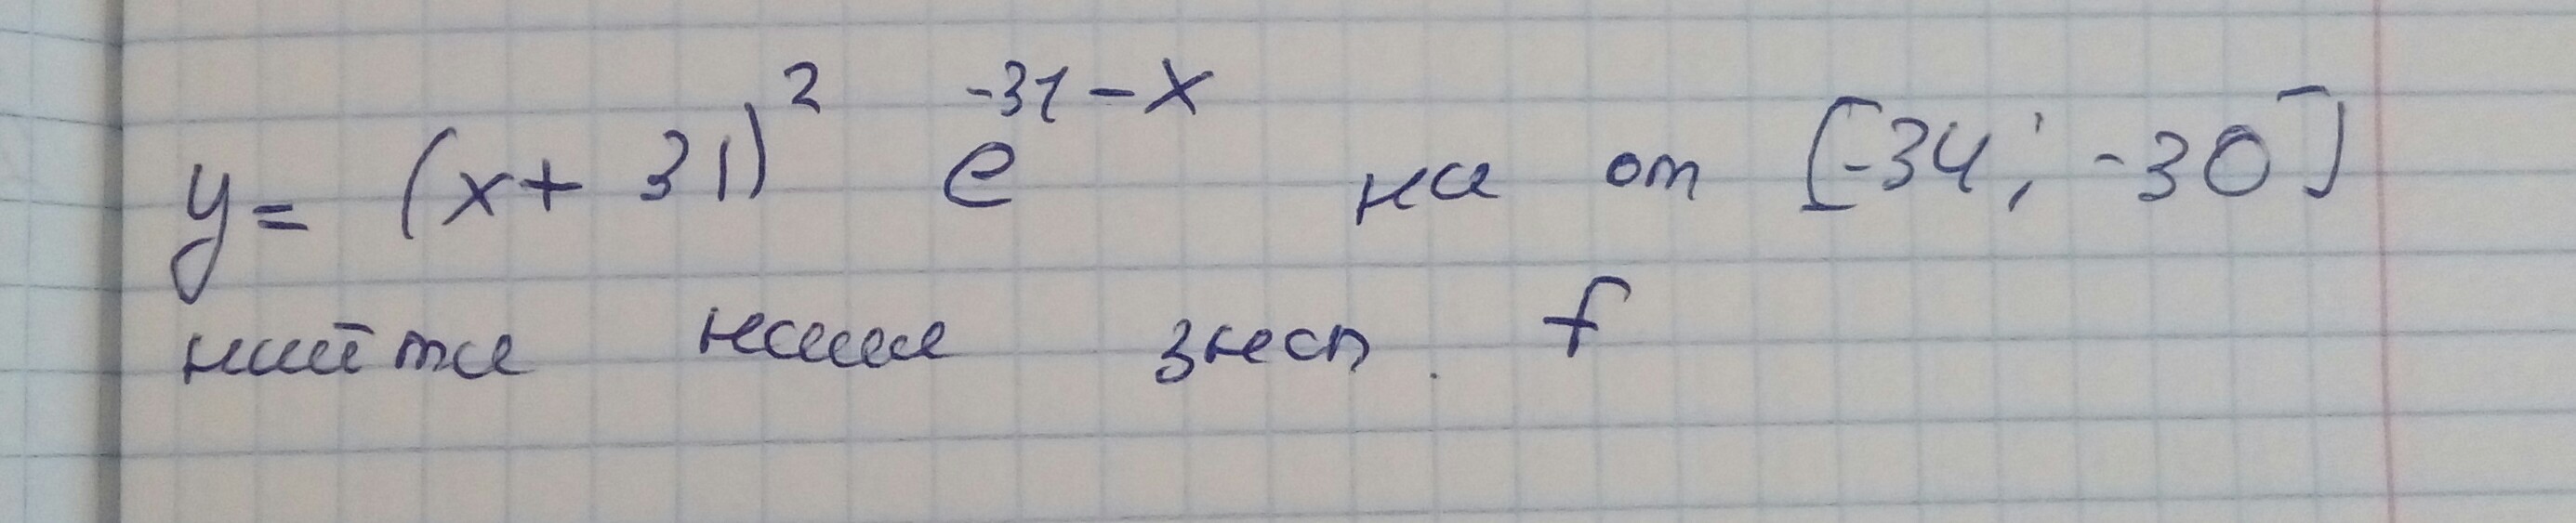 y = (x + 31)² e^(-31-x) на от [-34; -30]
найти наим знач. f